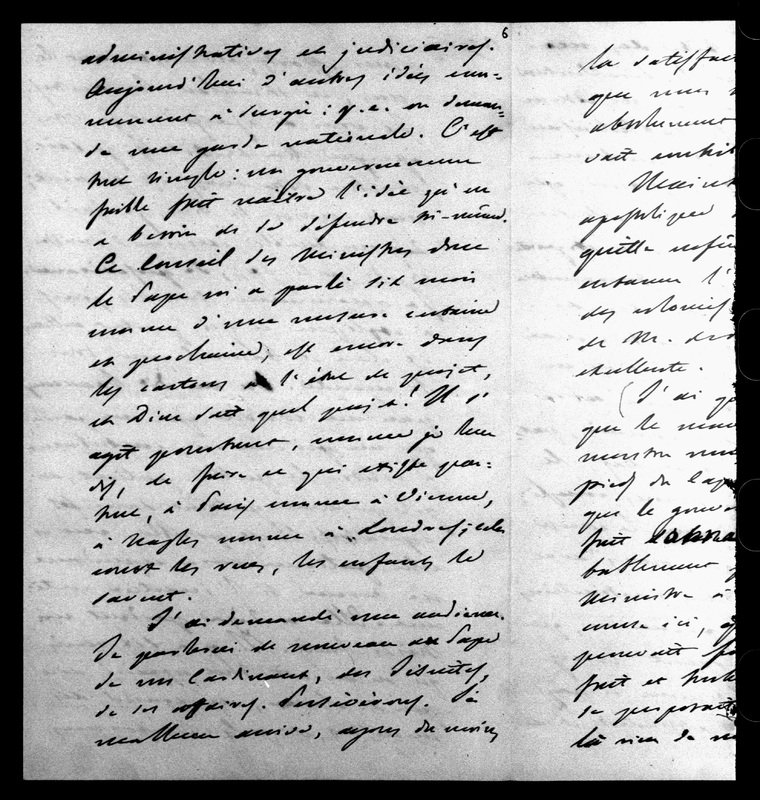 6
administratives et judiciaires.
Aujourd'hui d'autres idées com=
mencent à surgir: p. e. on deman=
de une garde nationale. C'est
tout simple: un gouvernement
faible fait naître l'idée qu'on
a besoin de se défendre soi-même.
Ce Conseil des Ministres dont
le Pape m'a parlé six mois
comme d'une mesure certaine
et prochaine, est encore dans
les cartons à l'état de projet,
et Dieu sait quel projet! Il s'
agit pourtant, comme je leur
dis, de faire ce qui existe par=
tout, à Paris comme à Vienne,
à Naples comme à Londres; cela
court les rues, les enfants le
savent.
J'ai demandé une audience.
Je parlerai de nouveau au Pape
de nos Cardinaux, des Jésuites,
de ses affaires. Persévérons. Si
malheur arrive, ayons du moins
la satisfac
que nous
absolument
vait
Maint
apostolique
qu'elle
entame l'
des
de M.
excellente.
(J'ai
que le
montre
pied du
que le gouv
fait
bablement
Ministre à
comme ici,
pouvait
fait et
se
là rien de